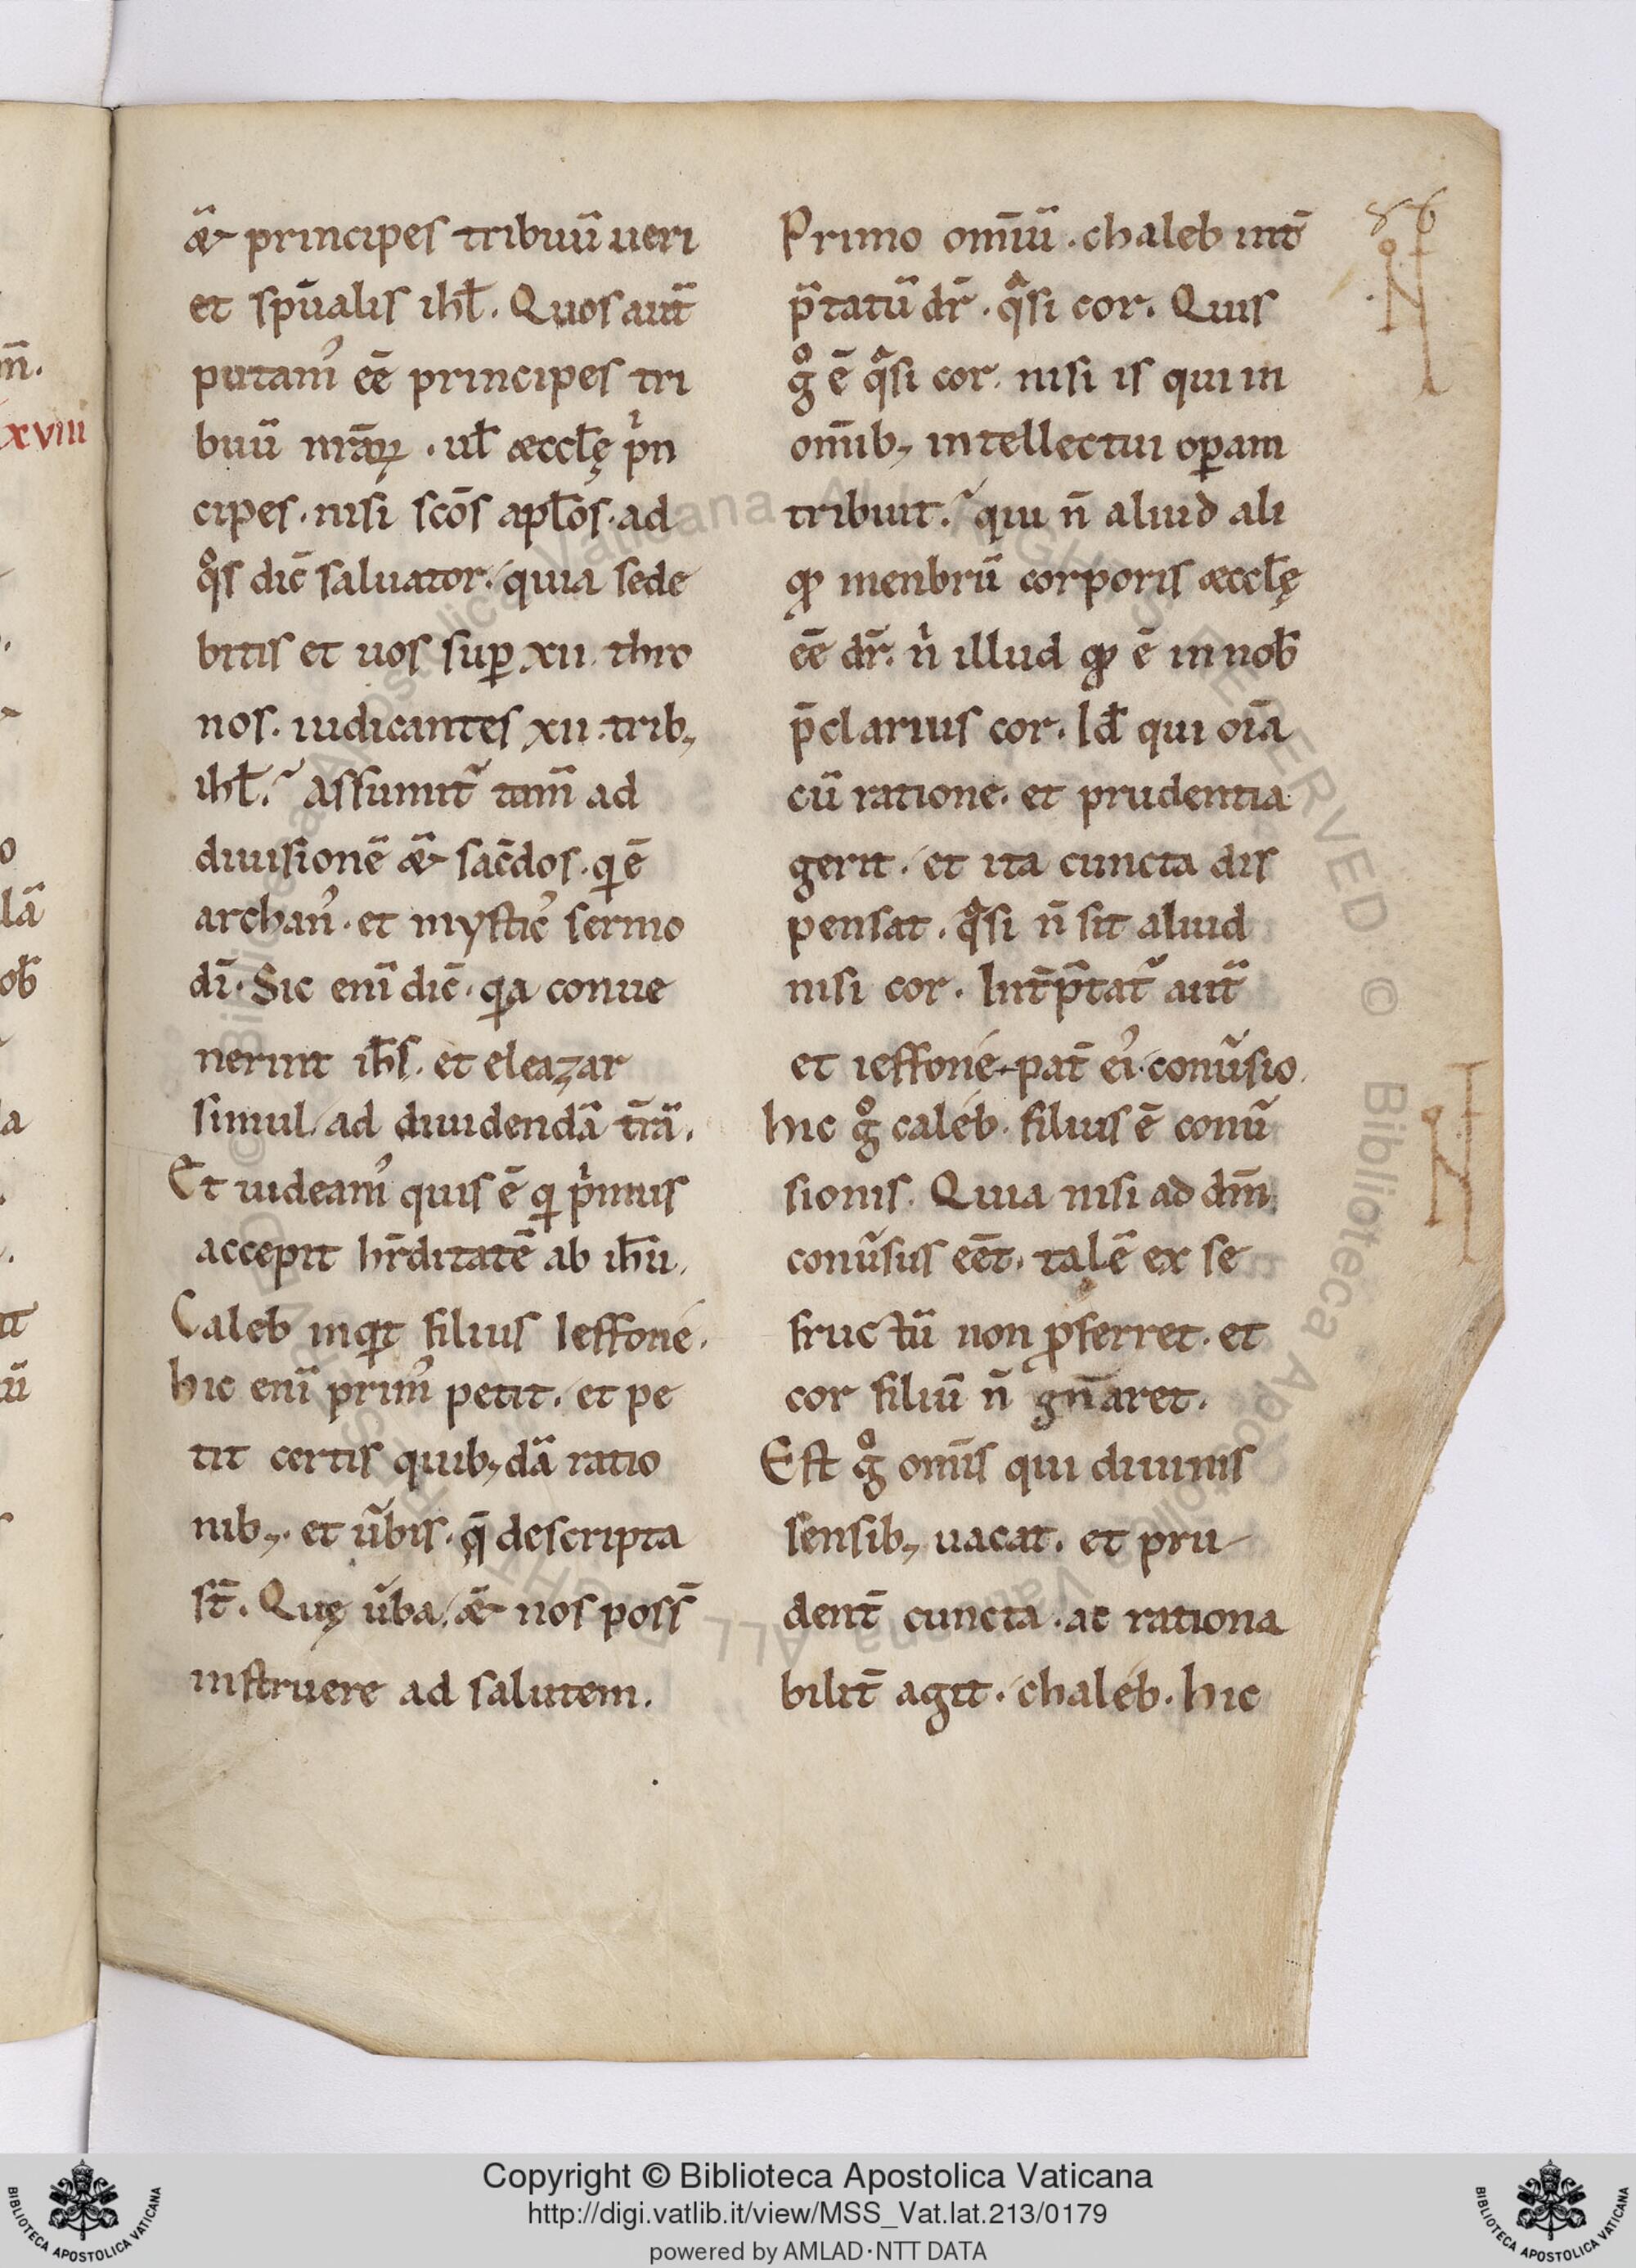 æ̃ principes tribuũ ueri
et spūalis ihƚ. Quos aut̃
putam᾽ eē principes tri
buũ nr̄aꝝ. uƚ æccƚę p̍n
cipes. nisi sc̄os apƚos. ad
qͦs dic̄ saluator. quia sede
bitis et uos suꝑ xii. thro
nos. iudicantes xii. trib;
ihƚ. Assumit᷑ tam̃ ad
diuisionē æ̃ sac̄dos. q̍ ē
archan᾽. et mystic᾽ sermo
dī. Sic enī dic̄. qꝛa conue
nerunt ih̄s. et eleazar
simul. ad diuidendā t̄rā.
Et uideam᾽ quis ē q̍ p̍mus
accepit hr̄ditatē ab ih̄u.
Caleb inq̍t filius Ieffoné.
hic enī prim᾽ petit. et pe
tit certis quib;dā ratio
nib;. et ũbis. q̄ descripta
st̄. Quę ũba. æ̃ nos poss̄
instruere ad salutem.
Primo om̄iũ. chaleb int̄
p̄tatũ dr̄. qͣsi cor. Quis
gͦ ē qͣsi cor. nisi is qui in
om̄ib; intellectui oꝑam
tribuit. qui n̄ aliud ali
qꝺ menbrũ corporis æccƚę
eē dr̄. n̍ illud qꝺ ē in nob̄
p̄clarius cor. Id̄ qui oīa
cũ ratione. et prudentia
gerit. et ita cuncta dis
pensat. qͣsi n̄ sit aliud
nisi cor. Int̄p̄tat᷑ aut̃
et ieffoné pat̄ ei᾽. conũsio.
hic gͦ caléb. filius ē conũ
sionis. Quia nisi ad dm̄
conũsus eēt. talē ex se
fructũ non ꝓferret. et
cor filiũ n̄ gn̄aret.
Est gͦ om̄is qui diuinis
sensib; uacat. et pru
dent̄ cuncta. ac rationa
bilit̄ agit. chaléb. hic
86
xviii
Copyright © Biblioteca Apostolica Vaticana
http://digi.vatlib.it/view/MSS_Vat.lat.213/0179
powered by AMLAD·NTT DATA
BIBLIOTECA APOSTOLICA VATICANA
BIBLIOTECA APOSTOLICA VATICANA